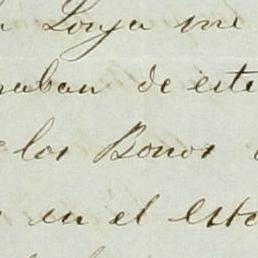 Lonja me
naban de este
los Bonos
en el esta